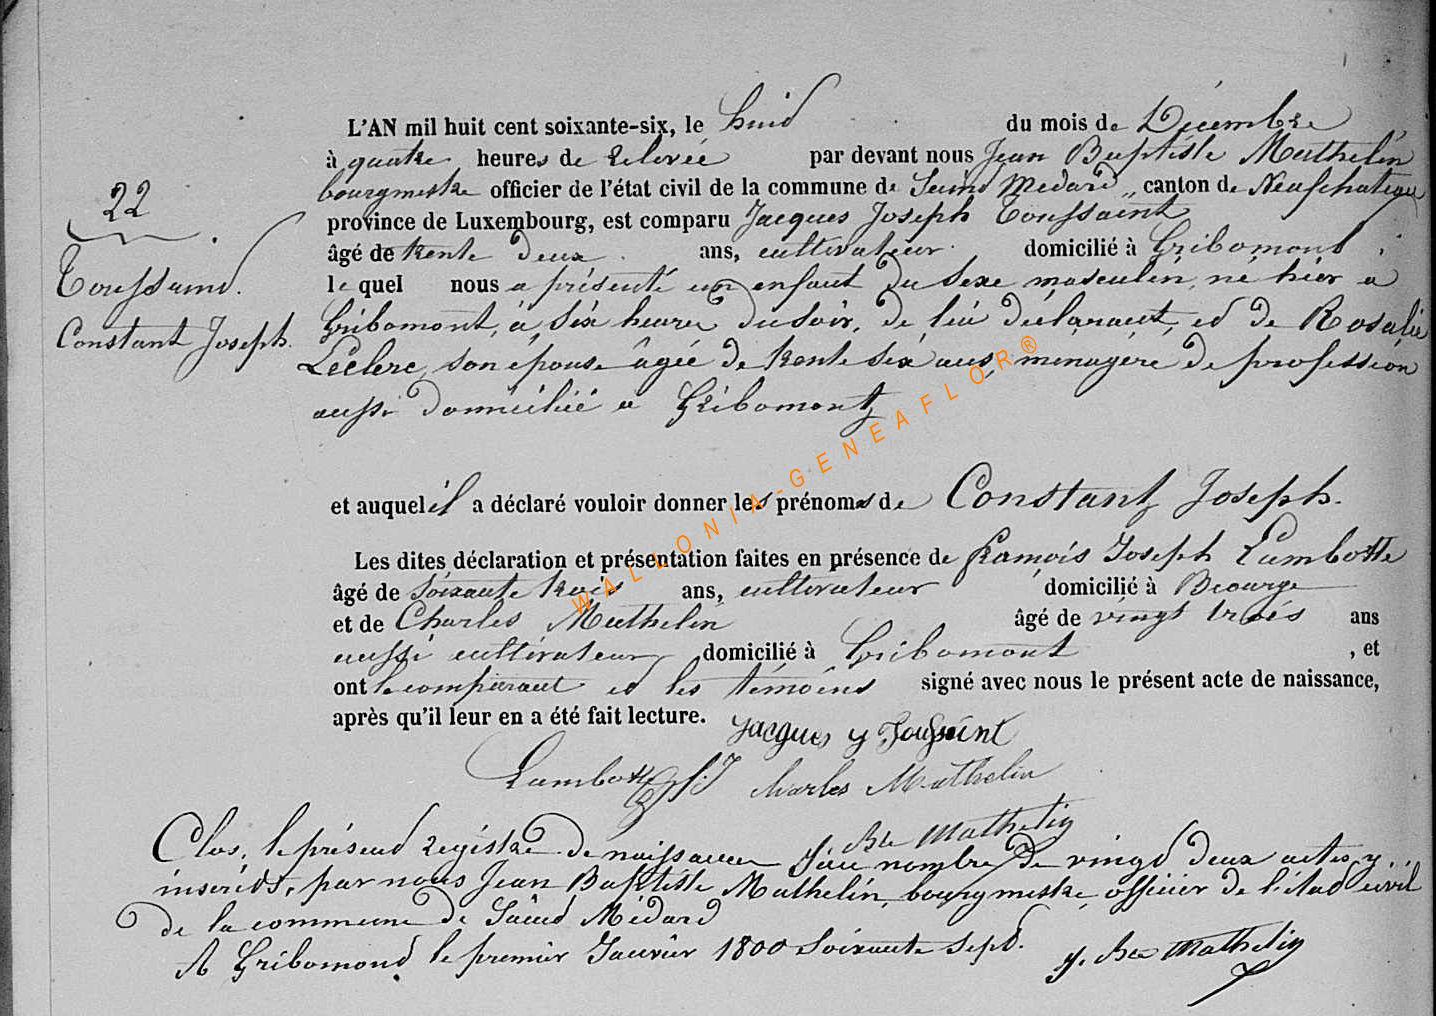 22
Toussaind.
Constant Joseph.
L'AN mil huit cent soixante-six, le huid du mois de Décembre
à quatre heures de relevée par devant nous Jean Baptiste Mathelin
bourgmestre officier de l'état civil de la commune de Saind Médard, canton de Neufchateau
province de Luxembourg, est comparu Jacques Joseph Toussaint
âgé de trente deux ans, cultivateur domicilié à Gribomont,
lequel nous a présenté un enfant du sexe masculin, né hier à
Gribomont, à six heures du soir, de lui déclarant, ed de Rosalie
Leclerc, son épouse âgée de trente six ans, ménagère de profession
aussi domiciliée à Gribomont
et auquel il a déclaré vouloir donner les prénoms de Constant Joseph.
Les dites déclaration et présentation faites en présence de François Joseph Lambotte
âgé de soixante trois ans, cultivateur domicilié à
et de Charles Mathelin âgé de vingt trois ans
aussi cultivateur, domicilié à Gribomont, et
ont le comparant ed les témoins signé avec nous le présent acte de naissance,
après qu'il leur en a été fait lecture. Jacques J Toussaint
Lambotte f.J Charles Mathelin
J. Bte Mathelin
Clos, le présend registre de naissances au nombre de vingd deux actes y
inscrits, par nous Jean Baptiste Mathelin, bourgmestre, officier de l'étad civil
de la commune de Saind Médard
A Gribomond le premier Janvier 1800 soixante sepd.
J. Bte Mathelin
WALLONIA-GENEAFLOR®